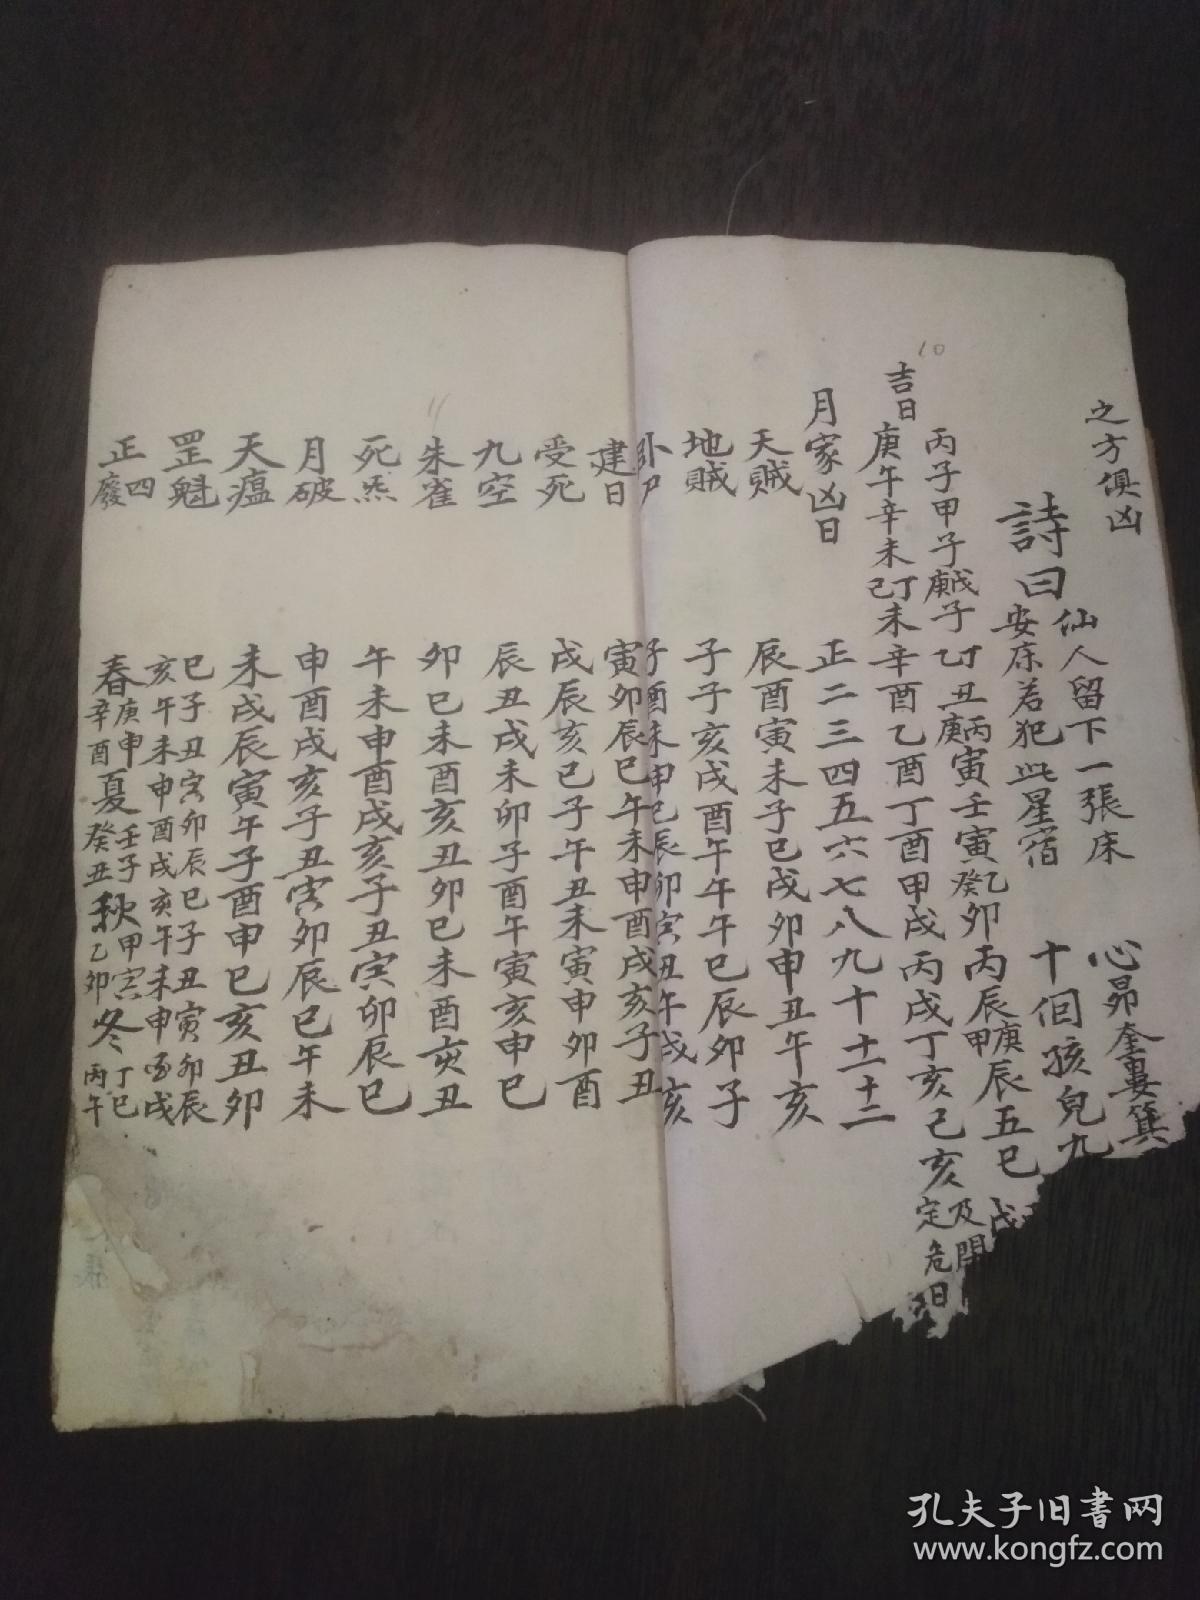 之方俱凶
詩曰
仙人留下一張床 心昴奎婁箕
安床若犯此星宿 十個孩兒九
丙子甲子庚戊子乙丁丑庚丙寅壬寅癸乙卯丙辰甲庚辰五巳戊
吉日庚午辛未己丁未辛酉乙酉丁酉甲戌丙戌丁亥己亥及開定危日
10
月家凶日 正二三四五六七八九十十一十二
天賊 辰酉寅未子巳戌卯申丑午亥
地賊 子子亥戌酉午午午巳辰卯子
卧尸 子酉未申巳辰卯寅丑午戌亥
建日 寅卯辰巳午未申酉戌亥子丑
受死 戌辰亥巳子午丑未寅申卯酉
九空 辰丑戌未卯子酉午寅亥申巳
11
朱雀 卯巳未酉亥丑卯巳未酉亥丑
死炁 午未申酉戌亥子丑寅卯辰巳
月破 申酉戌亥子丑寅卯辰巳午未
天瘟 未戌辰寅午子酉申巳亥丑卯
罡魁 巳子丑寅卯辰巳子丑寅卯辰
亥午未申酉戌亥午未申酉戌
正四廢 春庚申辛酉夏壬子癸丑秋甲寅乙卯冬丁巳丙午
孔夫子旧書网
www.kongfz.com